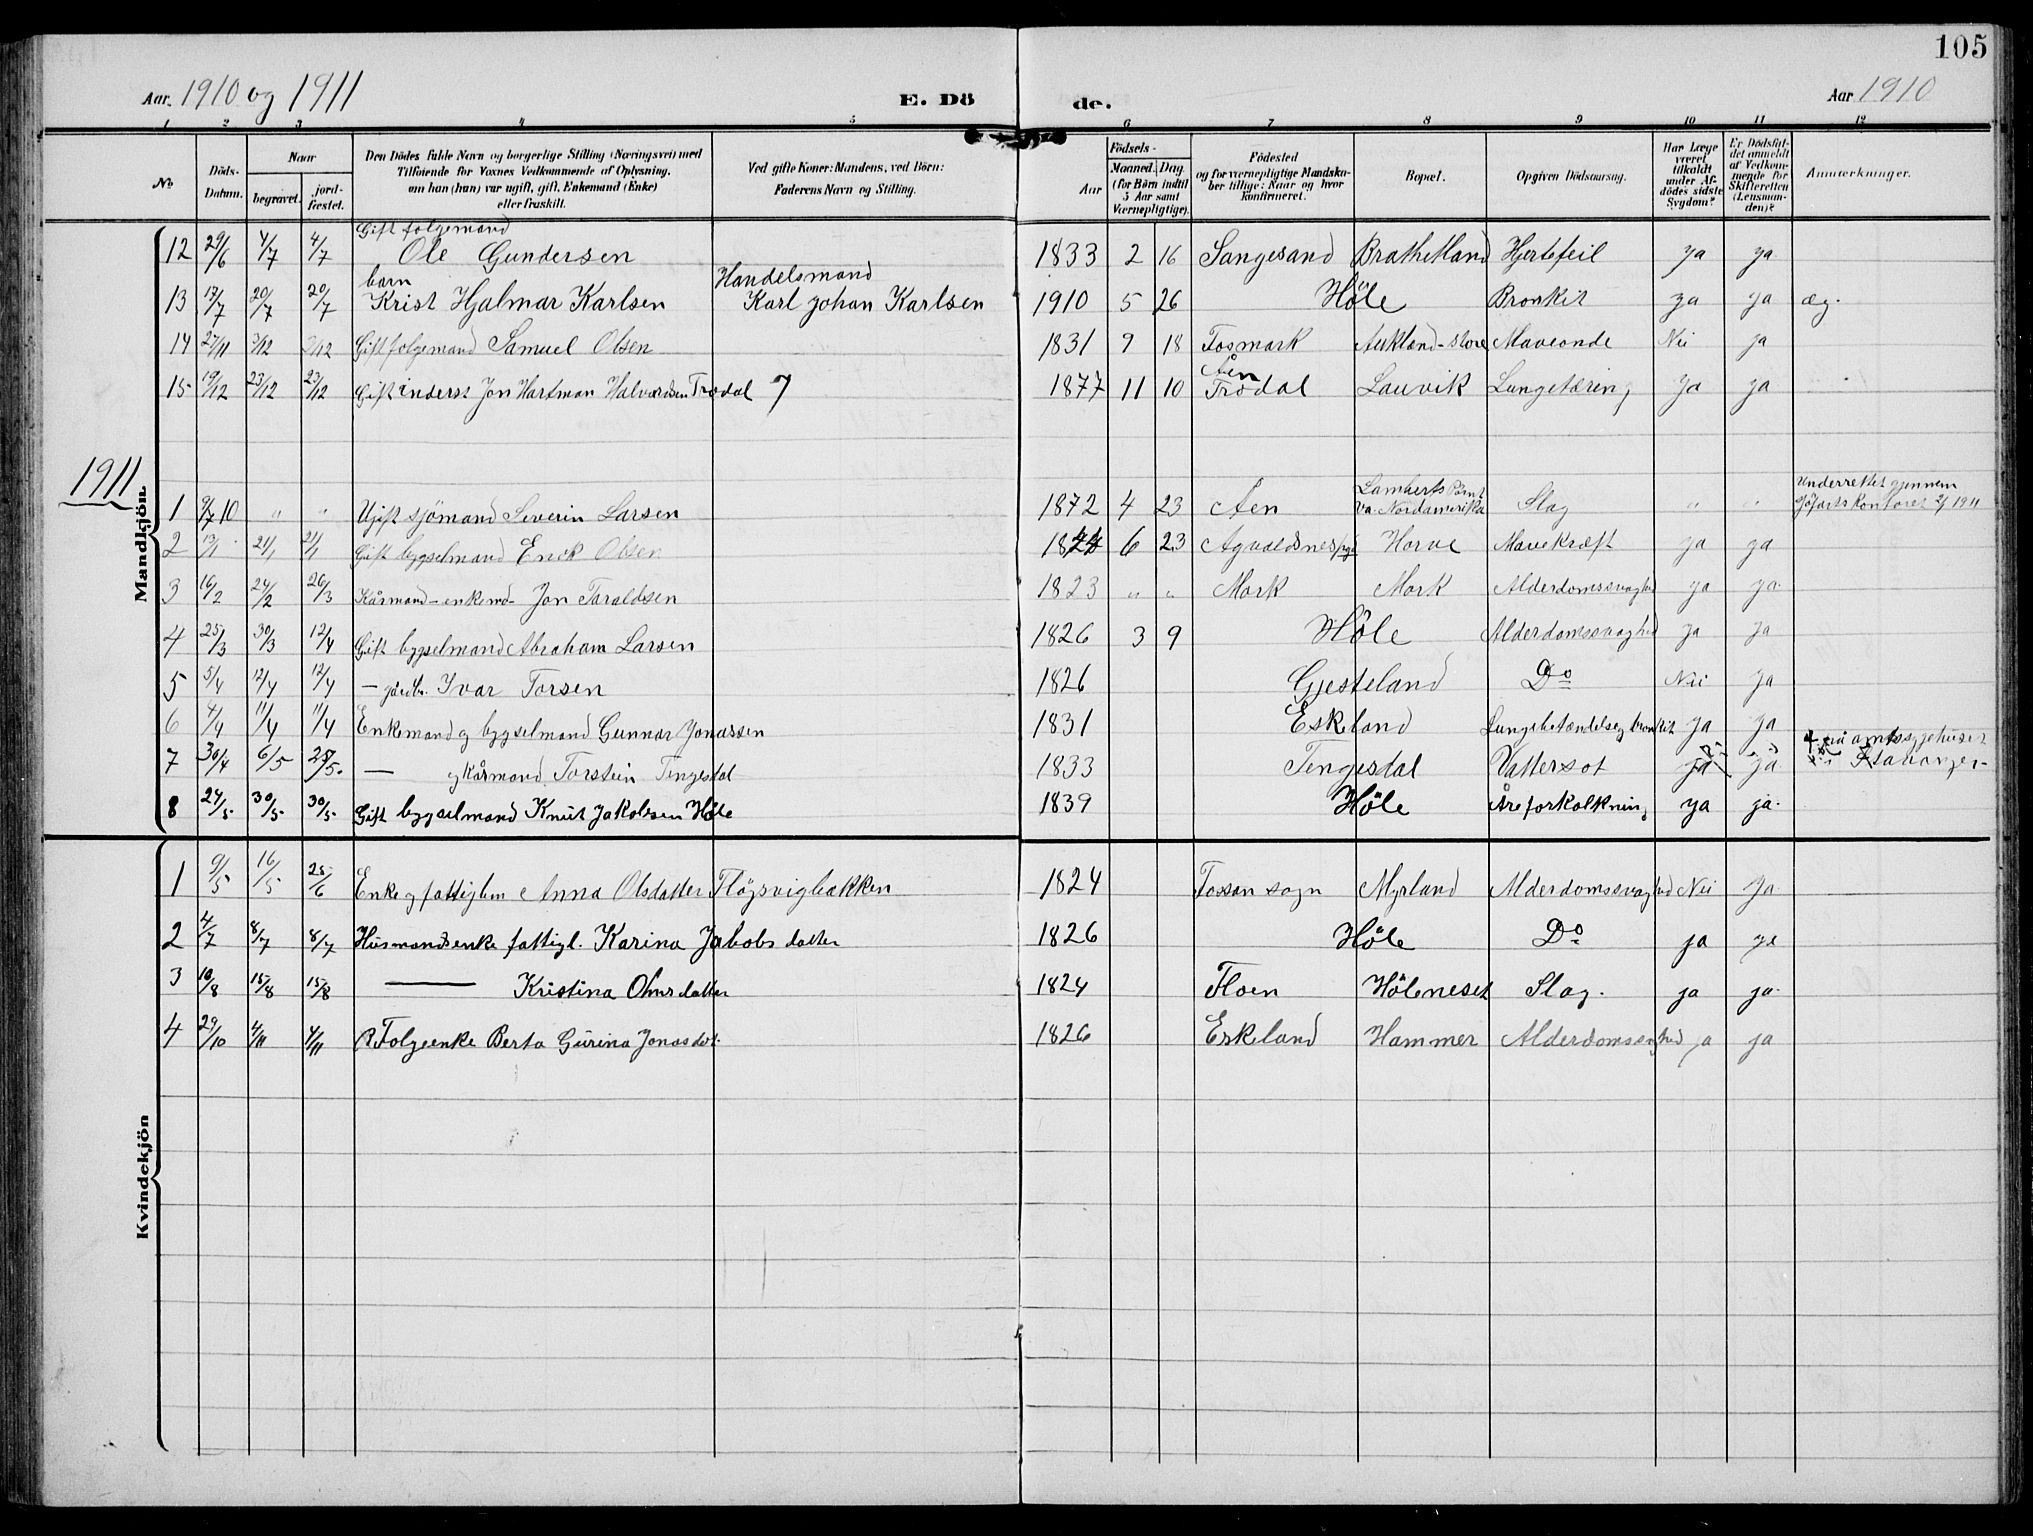 105
Aar. 1910 og 1911 E. Dö de. Aar 1910
1 2 3 4 5 6 7 8 9 10 11 12
No Döds-Datum. Naar begravet. jord-fæstet. Den Dödes fulde Navn og borgerlige Stilling (Næringsvei) med Tilföiende for Voxnes Vedkommende af Oplysning, om han (hun) var ugift, gift, Enkemand (Enke) eller fraskilt. Ved gifte Koner: Mandens, ved Börn: Faderens Navn og Stilling. Aar Födsels- Maaned. Dag. (for Börn indtil 5 Aar samt Værnepligtige). Födested og for værnepligtige Mandskaber tillige: Naar og hvor konfirmeret. Bopæl. Opgiven Dödsaarsag. Har Læge været tilkaldt under Afdödes sidste Sygdom? Er Dödsfaldet anmeldt af Vedkommende for Skifteretten (Lensmanden)? Anmerkninger.
Mandkjön.
Gift folgemand
12 29/6 4/7 4/7 Ole Gundersen 1833 2 16 Sangesand Brathetland Hjertefeil ja ja
barn Handelsmand
13 17/7 20/7 20/7 Krist Hjalmar Karlsen Karl Johan Karlsen 1910 5 26 Höle Bronkit ja ja æg.
14 27/11 3/12 3/12 Gift folgemand Samuel Olsen 1831 9 18 Fosmark Aukland-store Maveonde Nei ja
Åen
15 19/12 23/12 23/12 Gift inderst Jon Hartman Halvardsen Trodal 7 1877 11 10 Trodal Lauvik Lungetæring ja ja
1911
1 9/7 10 " " Ugift sjömand Severin Larsen 1872 4 23 Aen Lamberts Point Va. Nordamerika Slag " " Underrettet gjennem
2 13/1 21/1 21/1 Gift bygselmand Enok Olsen 6 23 Horve Mavekræft ja ja
3 16/2 24/2 26/3 Kårmand-enkemd- Jon Taraldsen 1823 " " Mork Mork Alderdomssvaghed ja ja
4 25/3 30/3 12/4 Gift bygselmand Abraham Larsen 1826 3 9 Höle Alderdomssvaghed ja ja
5 5/4 12/4 12/4 — Ivar Torsen 1826 Gjesteland Do Nei ja
6 4/4 11/4 11/4 Enkemand og bygselmand Gunnar Jonassen 1831 Eskeland Lungebetændelse og bronkit ja ja
7 30/4 6/5 28/5. — og Kårmand Torstein Tengesdal 1833 Tengesdal Vattersot ja ja på amtssygehuset i Stavanger
8 24/5. 30/5. 30/5. Gift bygselmand Knut Jakobsen Höle 1839 Höle Åreforkalkning ja ja
Kvindekjön
1 9/5 16/5 25/6 Enke og fattiglem Anna Olsdatter Flögsvigbakken 1824 Fossan sogn Myrland Alderdomssvaghed Nei Ja
2 4/7 8/7 8/7 Husmandsenke fattigl. Karina Jakobsdatter 1826 Höle Do ja ja
3 10/8 15/8 15/8 — Kristina Omsdatter 1824 Floen Höleneset Slag. ja ja
4 29/10 4/11 4/11 Folgeenke Berta Gurina Jonasdat. 1826 Eskeland Hammer Alderdomssvaghed ja ja